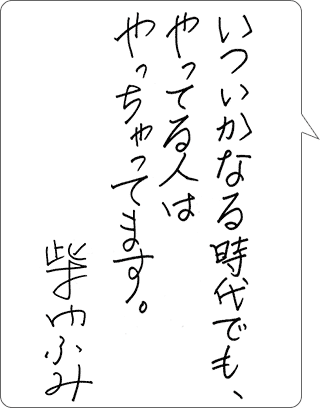 いついかなる時代でも、
やってる人は
やっちゃってます。
柴ゆふみ